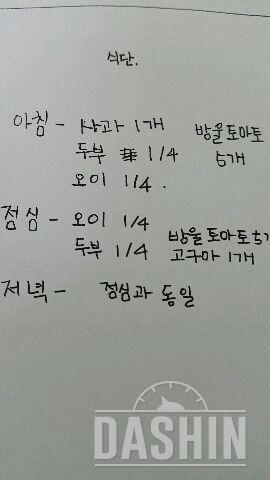 식단.
아침 - 사과 1개 방울토마토
두부 1/4 5개
오이 1/4.
점심 - 오이 1/4
두부 1/4 방울토마토 5개
고구마 1개
저녁 - 점심과 동일
DASHIN